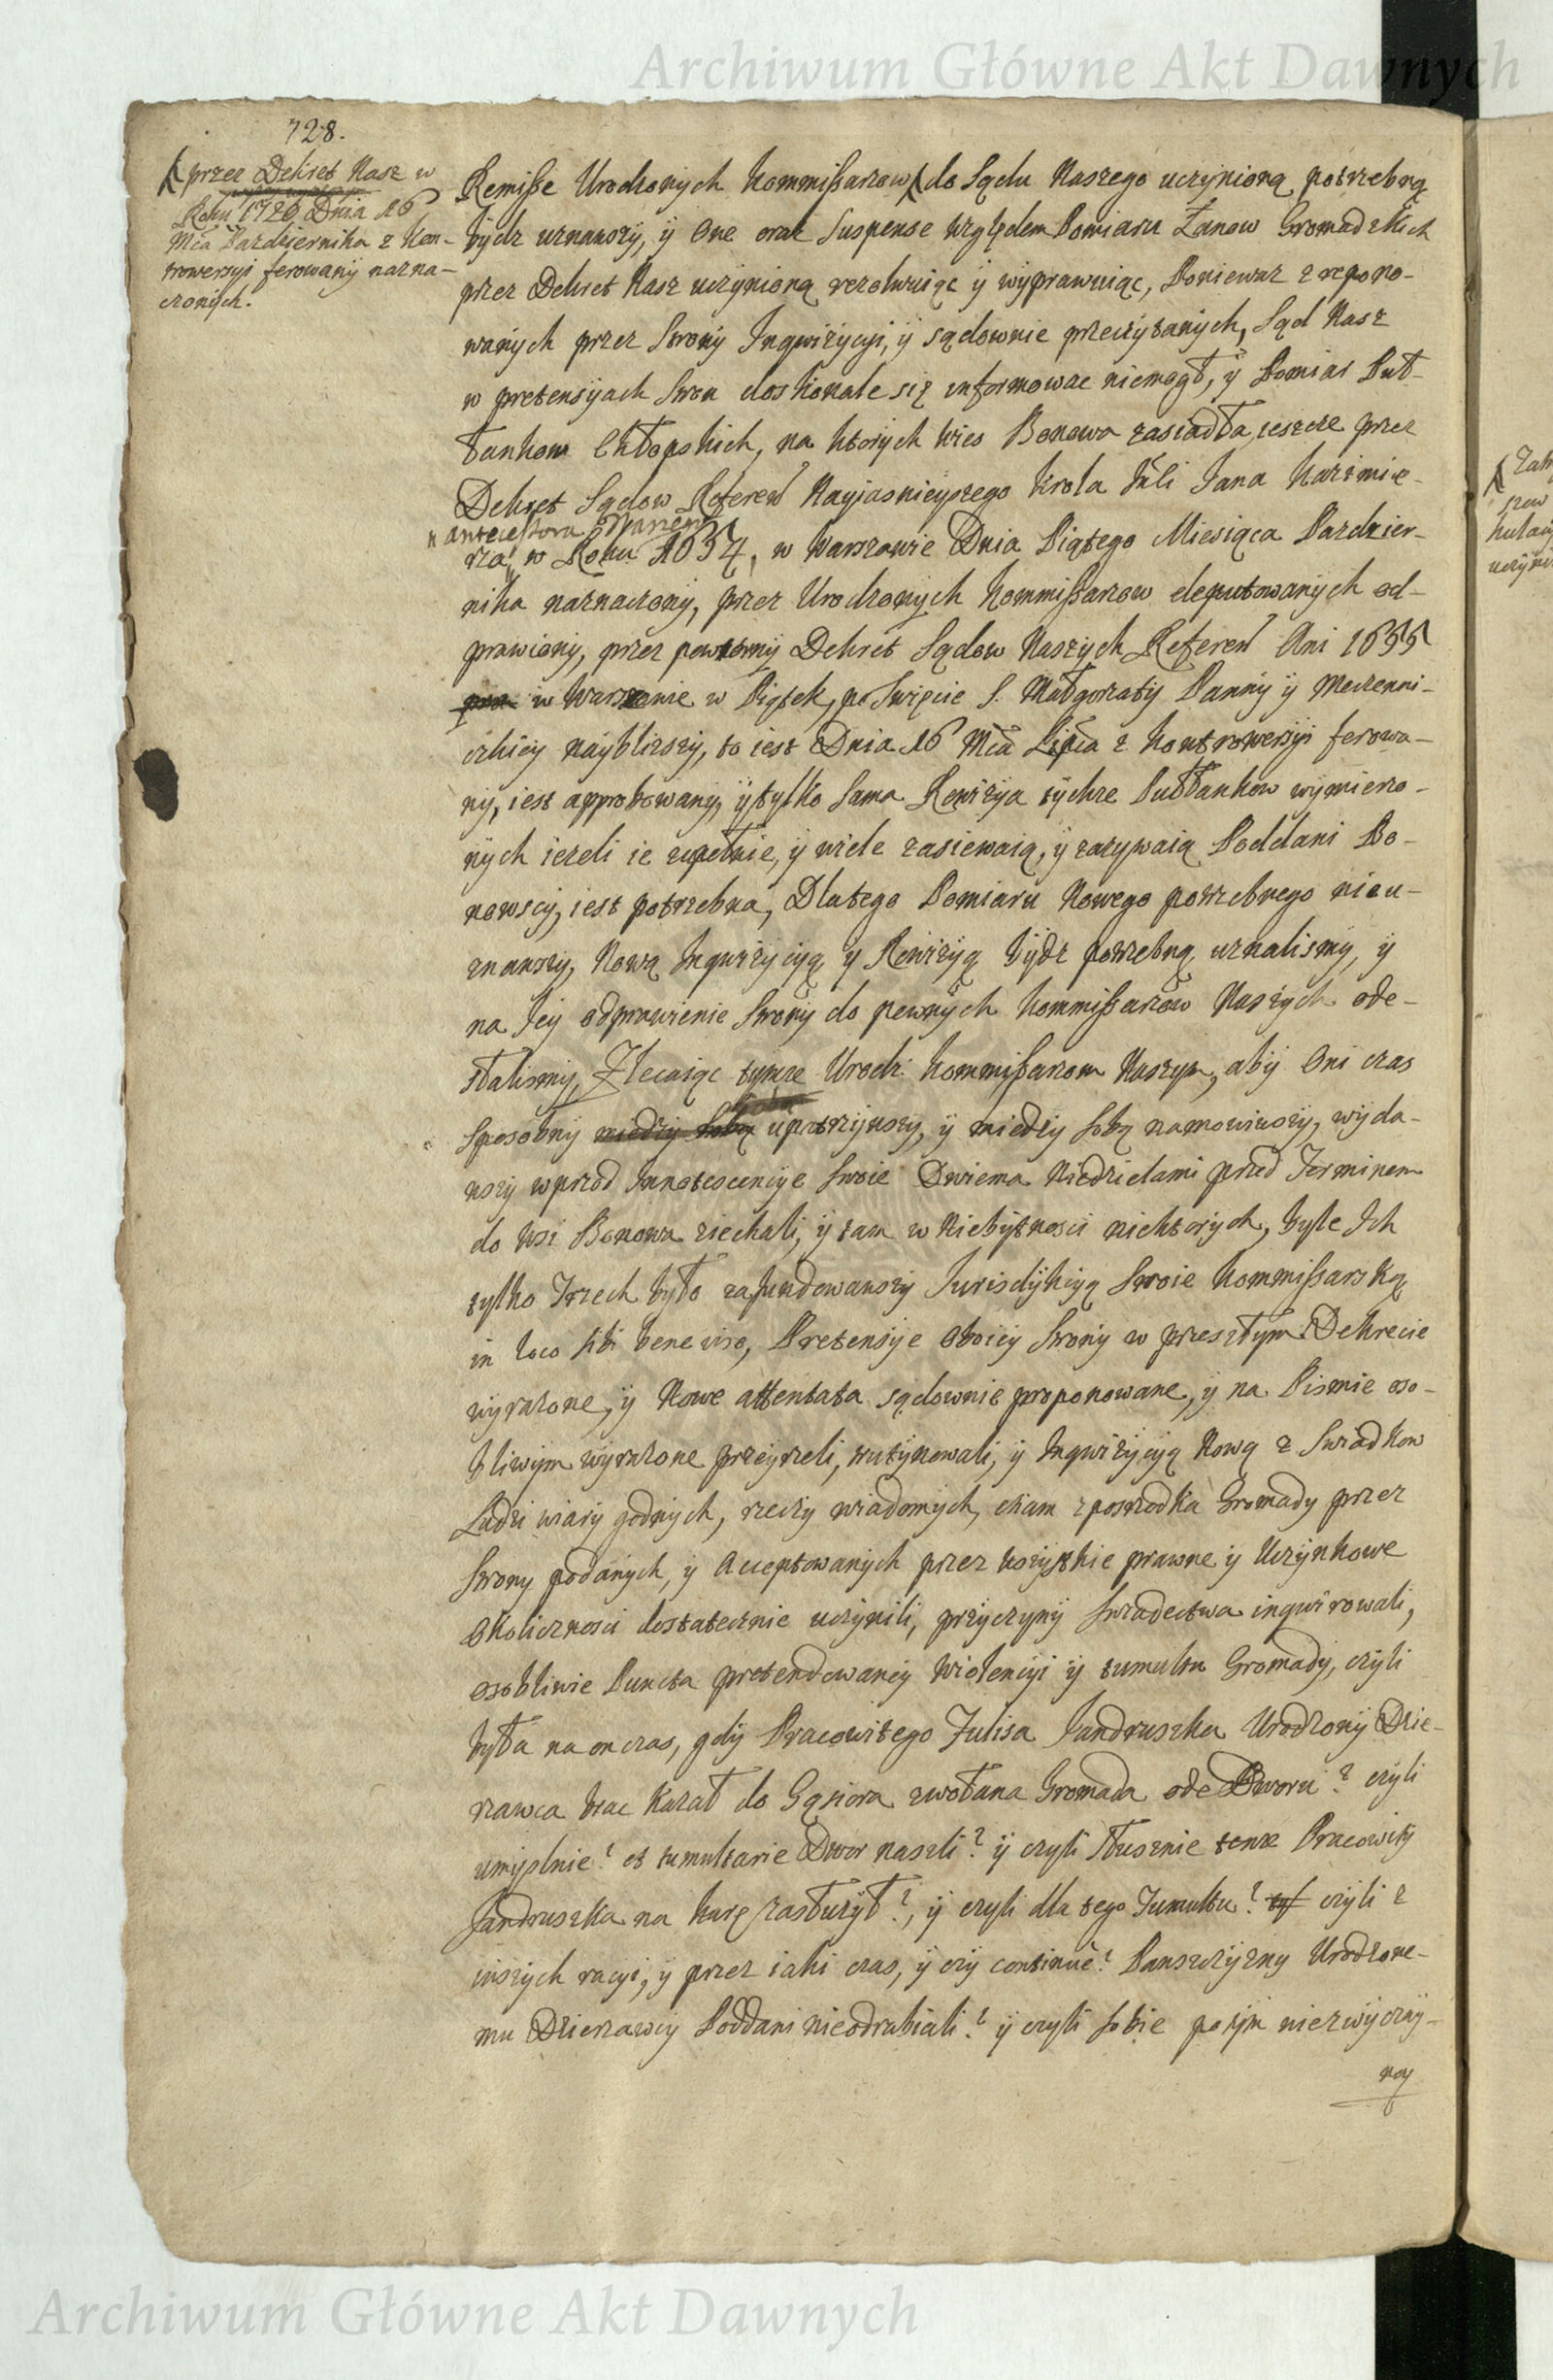 Archiwum Główne Akt Dawnych
728.
przez Dekret Nasz w
Roku 1726 Dnia 16
Mca Pazdziernika z Kon-
trowersyi ferowany nazna-
czonych.
Remisse Urodzonych Kommissarzow do Sądu Naszego uczynioną potrzebną
bydz uznawszy, y One oraz Suspense względem Pomiaru Łanow Gromadzkich
przez Dekret Nasz uczynioną rezolwuiąc y wyprawuiąc, Poniewaz z repono-
wanych przez Strony Inqwizycyi, y sądownie przeczytanych, Sąd Nasz
w pretensyach Stron doskonale się informowac niemogł, y Pomiar Puł-
łankow Chłopskich, na ktorych Wies Bonowa zasiadła, ieszcze przez
Dekret Sądow Referen Nayjasnieyszego Krola JMci Jana Kazimie-
rza antecessora Naszego w Roku 1654, w Warszawie Dnia Piątego Miesiąca Pazdzier-
nika naznaczony, przez Urodzonych Kommissarzow deputowanych od-
prawiony, przez powtorny Dekret Sądow Naszych Referen Ani 1655
w Warszawie w Piątek, po Swięcie S. Małgorzaty Panny y Meczenni-
czkiey nayblizszy, to iest Dnia 16 Mca Lipca z Kontrowersyi ferowa-
ny, iest approbowany, y tylko sama Rewizya tychze Pułłankow wymierzo-
nych iezeli ie zupełnie, y wiele zasiewaią, y zazywaią Poddani Bo-
nowscy, iest potrzebna, Dlatego Pomiaru Nowego potrzebnego nieu-
znawszy, Nową Inqwizycyą y Rewizyą bydz potrzebną uznalismy, y
na Jey odprawienie Strony do pewnych Kommissarzow Naszych ode-
słalismy, Zlecaiąc tymze Urodz: Kommissarzom Naszym, aby Oni czas
sposobny miedzy sobą upatrzywszy, y miedzy sobą namowiwszy, wyda-
wszy wprzod Innotescencye swoie Dwiema Niedzielami przed Terminem
do Wsi Bonowa ziechali, y tam w Niebytnosci niektorych, byle Ich
tylko Trzech było zafundowawszy Jurisdykcyą Swoie Kommissarską
in loco sibi bene viso, Pretensye Oboiey Strony w przeszłym Dekrecie
wyrazone, y Nowe attentata sądownie proponowane, y na Pismie oso-
bliwym wyrazone przeyrzeli, trutynowali, y Inqwizycyą Nową z Swiadkow
Ludzi wiary godnych, rzeczy wiadomych, etiam zposrzodka Gromady przez
Strony podanych, y Acceptowanych przez wszystkie prawne y Uczynkowe
Okolicznosci dostatecznie uczynili, przyczyny swiadectwa inqwirowali,
osobliwie Puncta pretendowaney Wiolencyi y tumultu Gromady, czyli
była na on czas, gdy Pracowitego Julisa Jandruszka Urodzony Dzie-
rzawca brac kazał do Gąsiora zwołana Gromada ode Dworu? czyli
umyslnie? et tumultarie Dwor naszli? y czyli słusznie tenze Pracowity
Jandruszka na karę zasłuzył?, y czyli dla tego Tumultu? czyli z
inszych racyi, y przez iaki czas, y czy continuè? Panszczyzny Urodzone-
mu Dzierzawcy Poddani nieodrabiali? y czyli sobie potym niezwyczay-
ney
Archiwum Główne Akt Dawnych